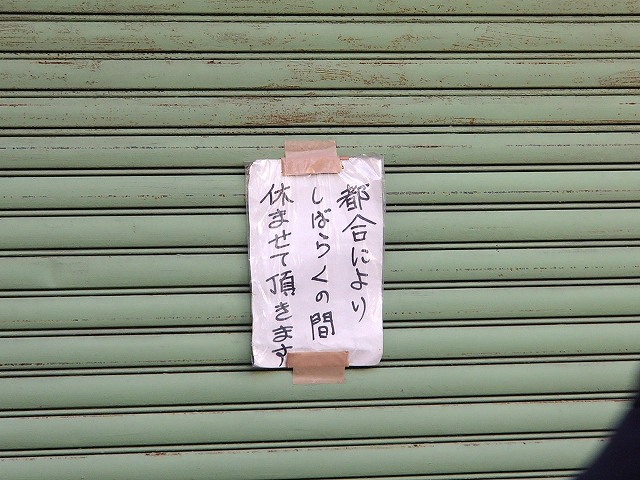 都合により
しばらくの間
休ませて頂きます